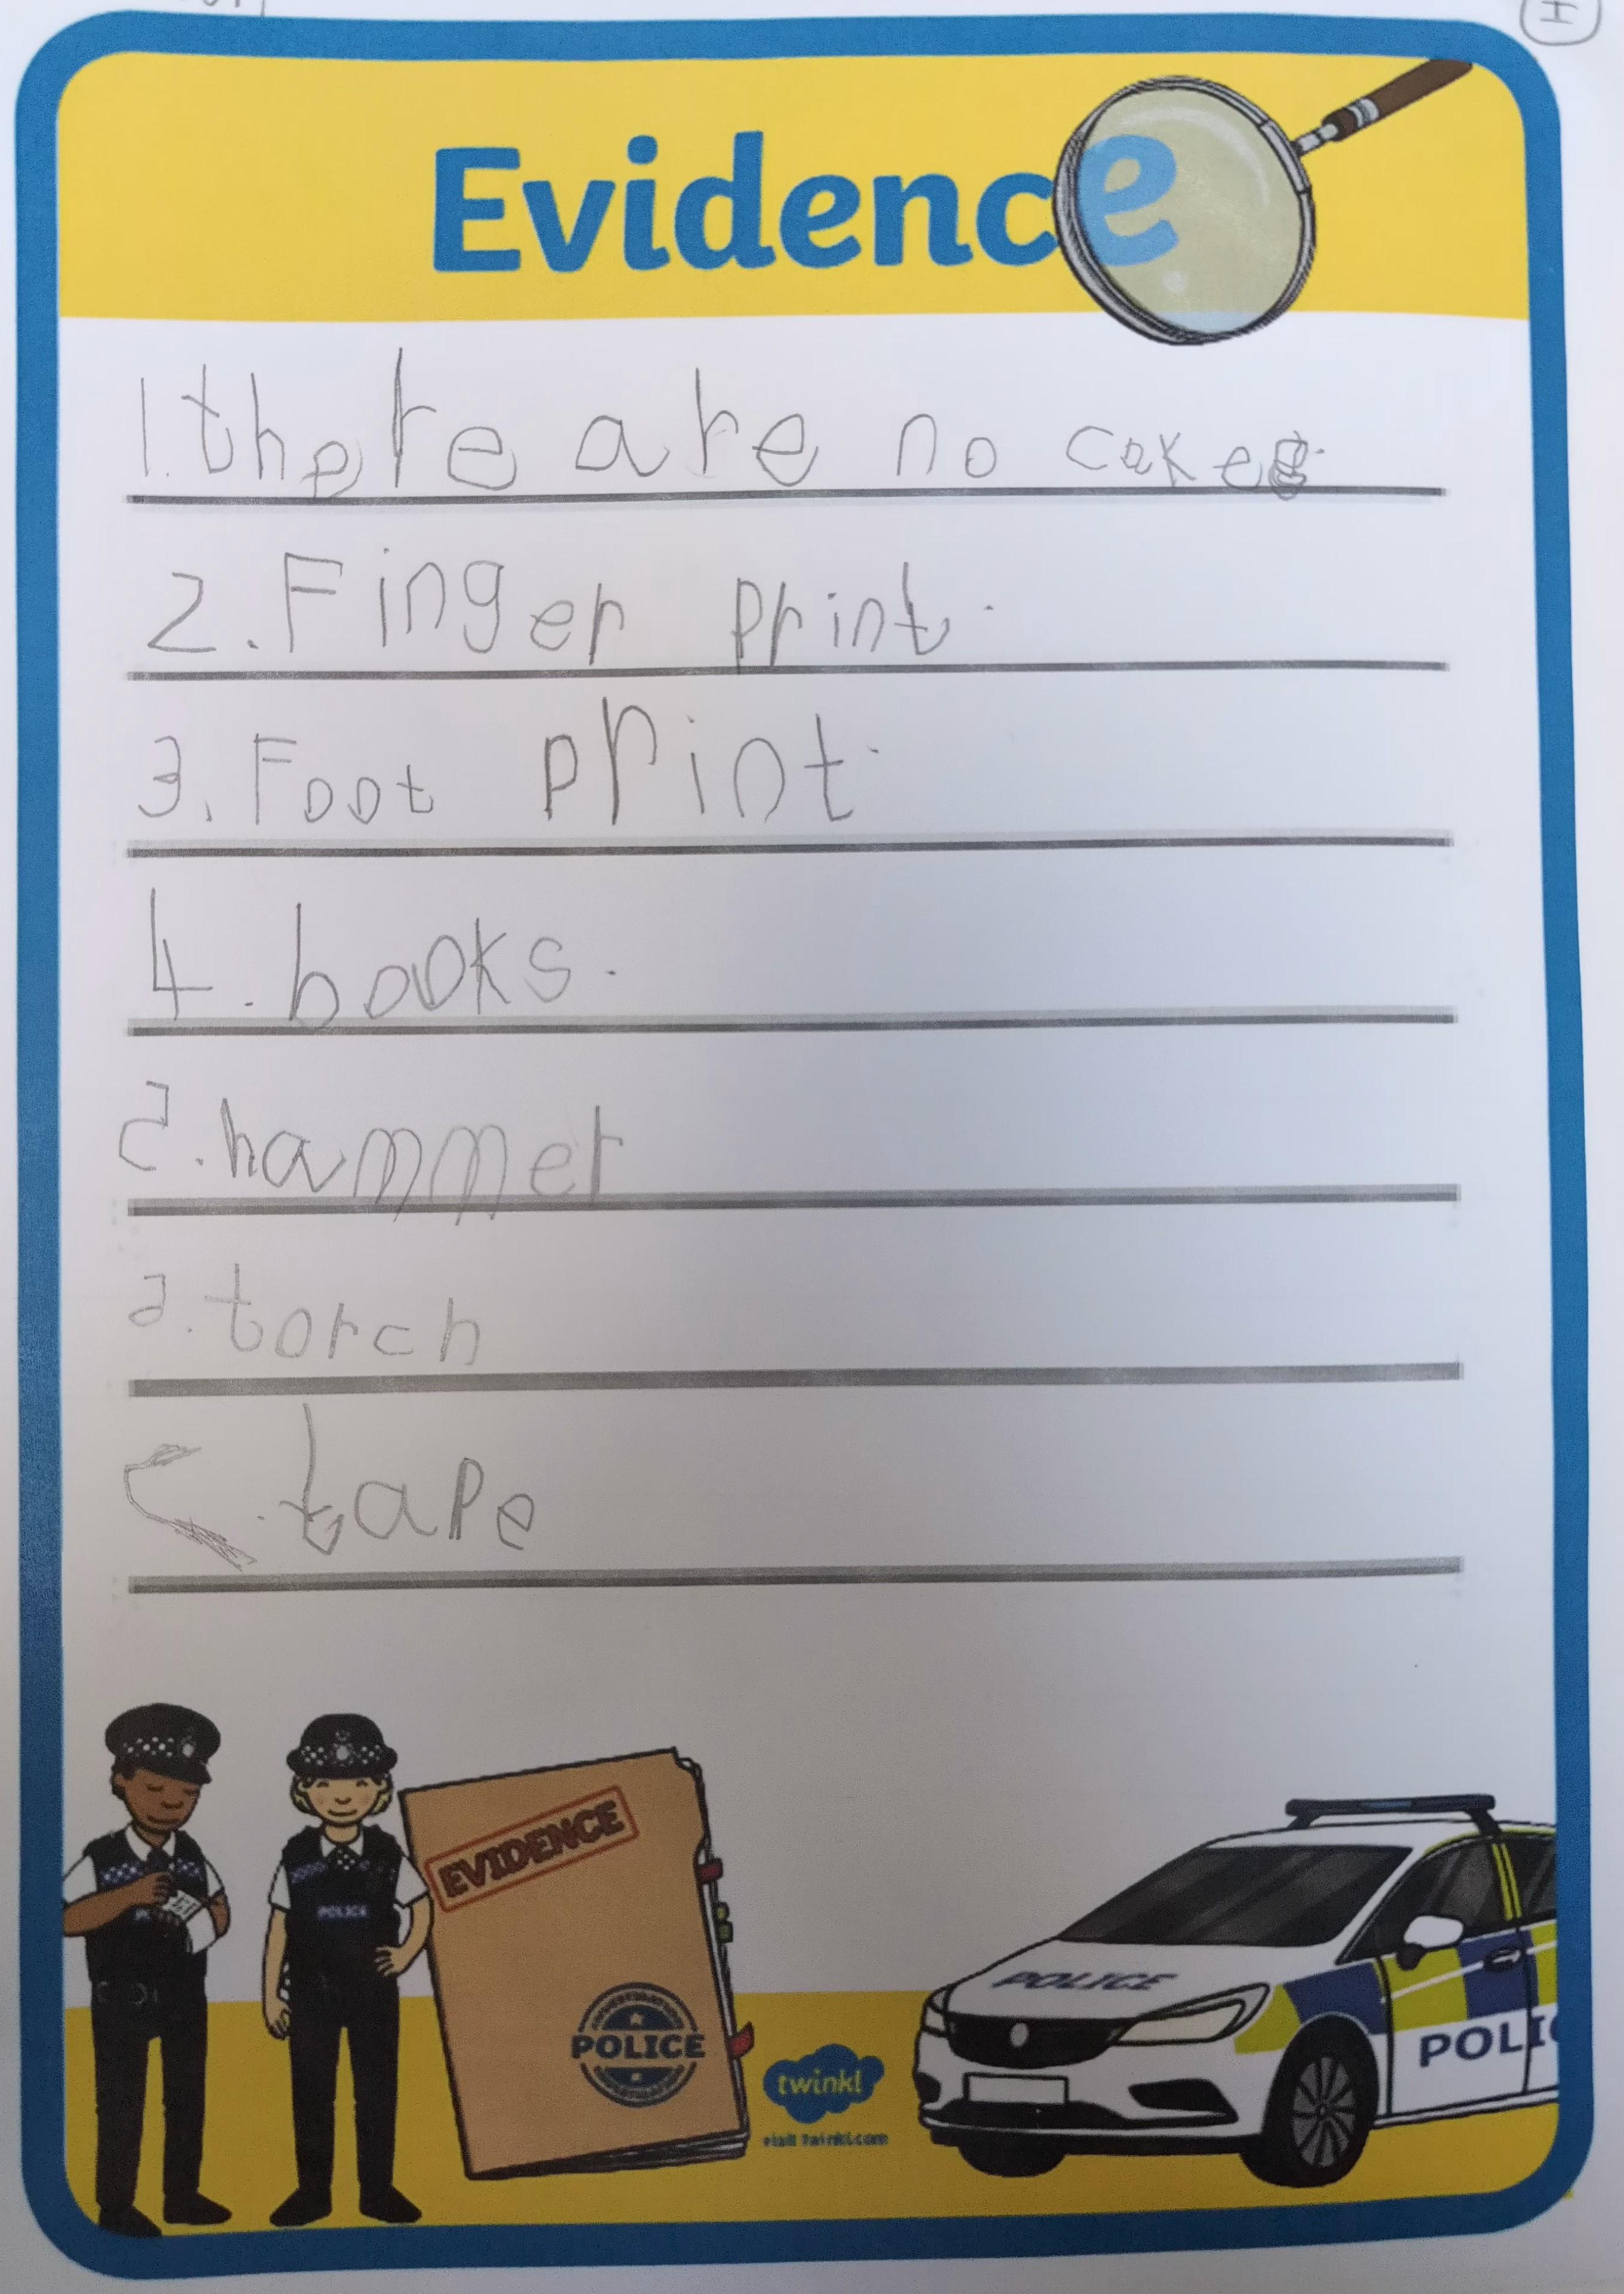 Evidence
1. there are no cakes.
2. Finger print.
3. Foot print.
4. books.
hammer
torch
tape
EVIDENCE
POLICE
POLICE
POLICE
POLIC
twinkl
visit twinkl.com